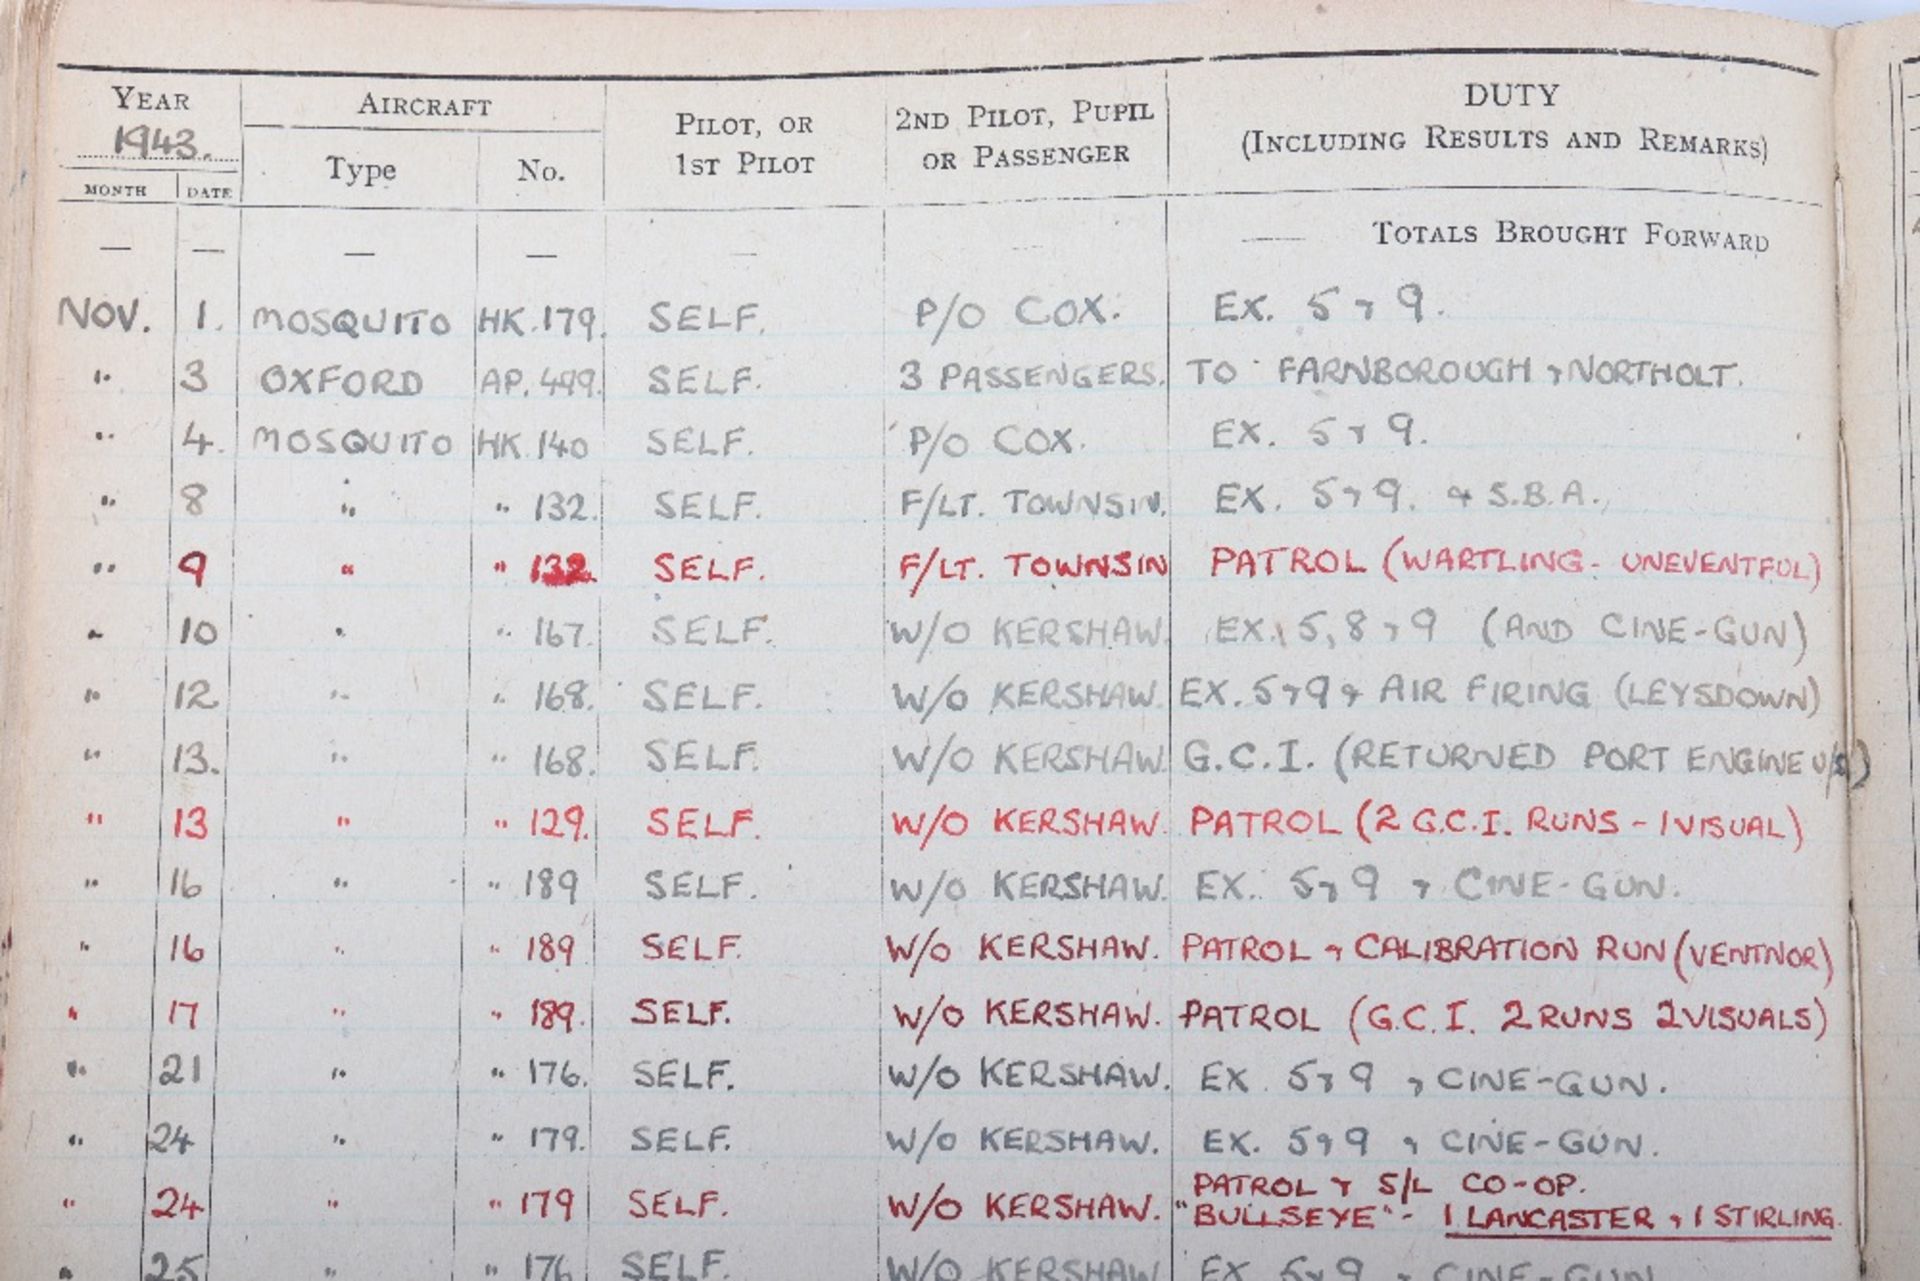 YEAR AIRCRAFT PILOT, OR 2ND PILOT, PUPIL DUTY
1943. Type No. 1ST PILOT OR PASSENGER (INCLUDING RESULTS AND REMARKS)
MONTH DATE
— — — — — — — TOTALS BROUGHT FORWARD
NOV. 1. MOSQUITO HK.179. SELF. P/O COX. EX. 5 & 9.
" 3 OXFORD AP.499. SELF. 3 PASSENGERS. TO FARNBOROUGH & NORTHOLT.
" 4. MOSQUITO HK.140 SELF. P/O COX. EX. 5 & 9.
" 8 " " 132. SELF. F/LT. TOWNSIN. EX. 5 & 9. & S.B.A.
" 9 " " 132. SELF. F/LT. TOWNSIN PATROL (WARTLING - UNEVENTFUL)
" 10 " " 167. SELF. W/O KERSHAW. EX. 5, 8 & 9 (AND CINE-GUN)
" 12 " " 168. SELF. W/O KERSHAW. EX. 5 & 9 & AIR FIRING (LEYSDOWN)
" 13. " " 168. SELF. W/O KERSHAW. G.C.I. (RETURNED PORT ENGINE U/S)
" 13 " " 129. SELF. W/O KERSHAW. PATROL (2 G.C.I. RUNS - 1 VISUAL)
" 16 " " 189 SELF. W/O KERSHAW. EX. 5 & 9 & CINE-GUN.
" 16 " " 189 SELF. W/O KERSHAW. PATROL & CALIBRATION RUN (VENTNOR)
" 17 " " 189. SELF. W/O KERSHAW. PATROL (G.C.I. 2 RUNS 2 VISUALS)
" 21 " " 176. SELF. W/O KERSHAW. EX 5 & 9 & CINE-GUN.
" 24 " " 179. SELF. W/O KERSHAW. EX. 5 & 9 & CINE-GUN.
" 24 " " 179 SELF. W/O KERSHAW. PATROL & S/L CO-OP.
"BULLSEYE" - 1 LANCASTER & 1 STIRLING.
" 25 " " 176 SELF. W/O KERSHAW. EX 5 & 9 & CINE-GUN